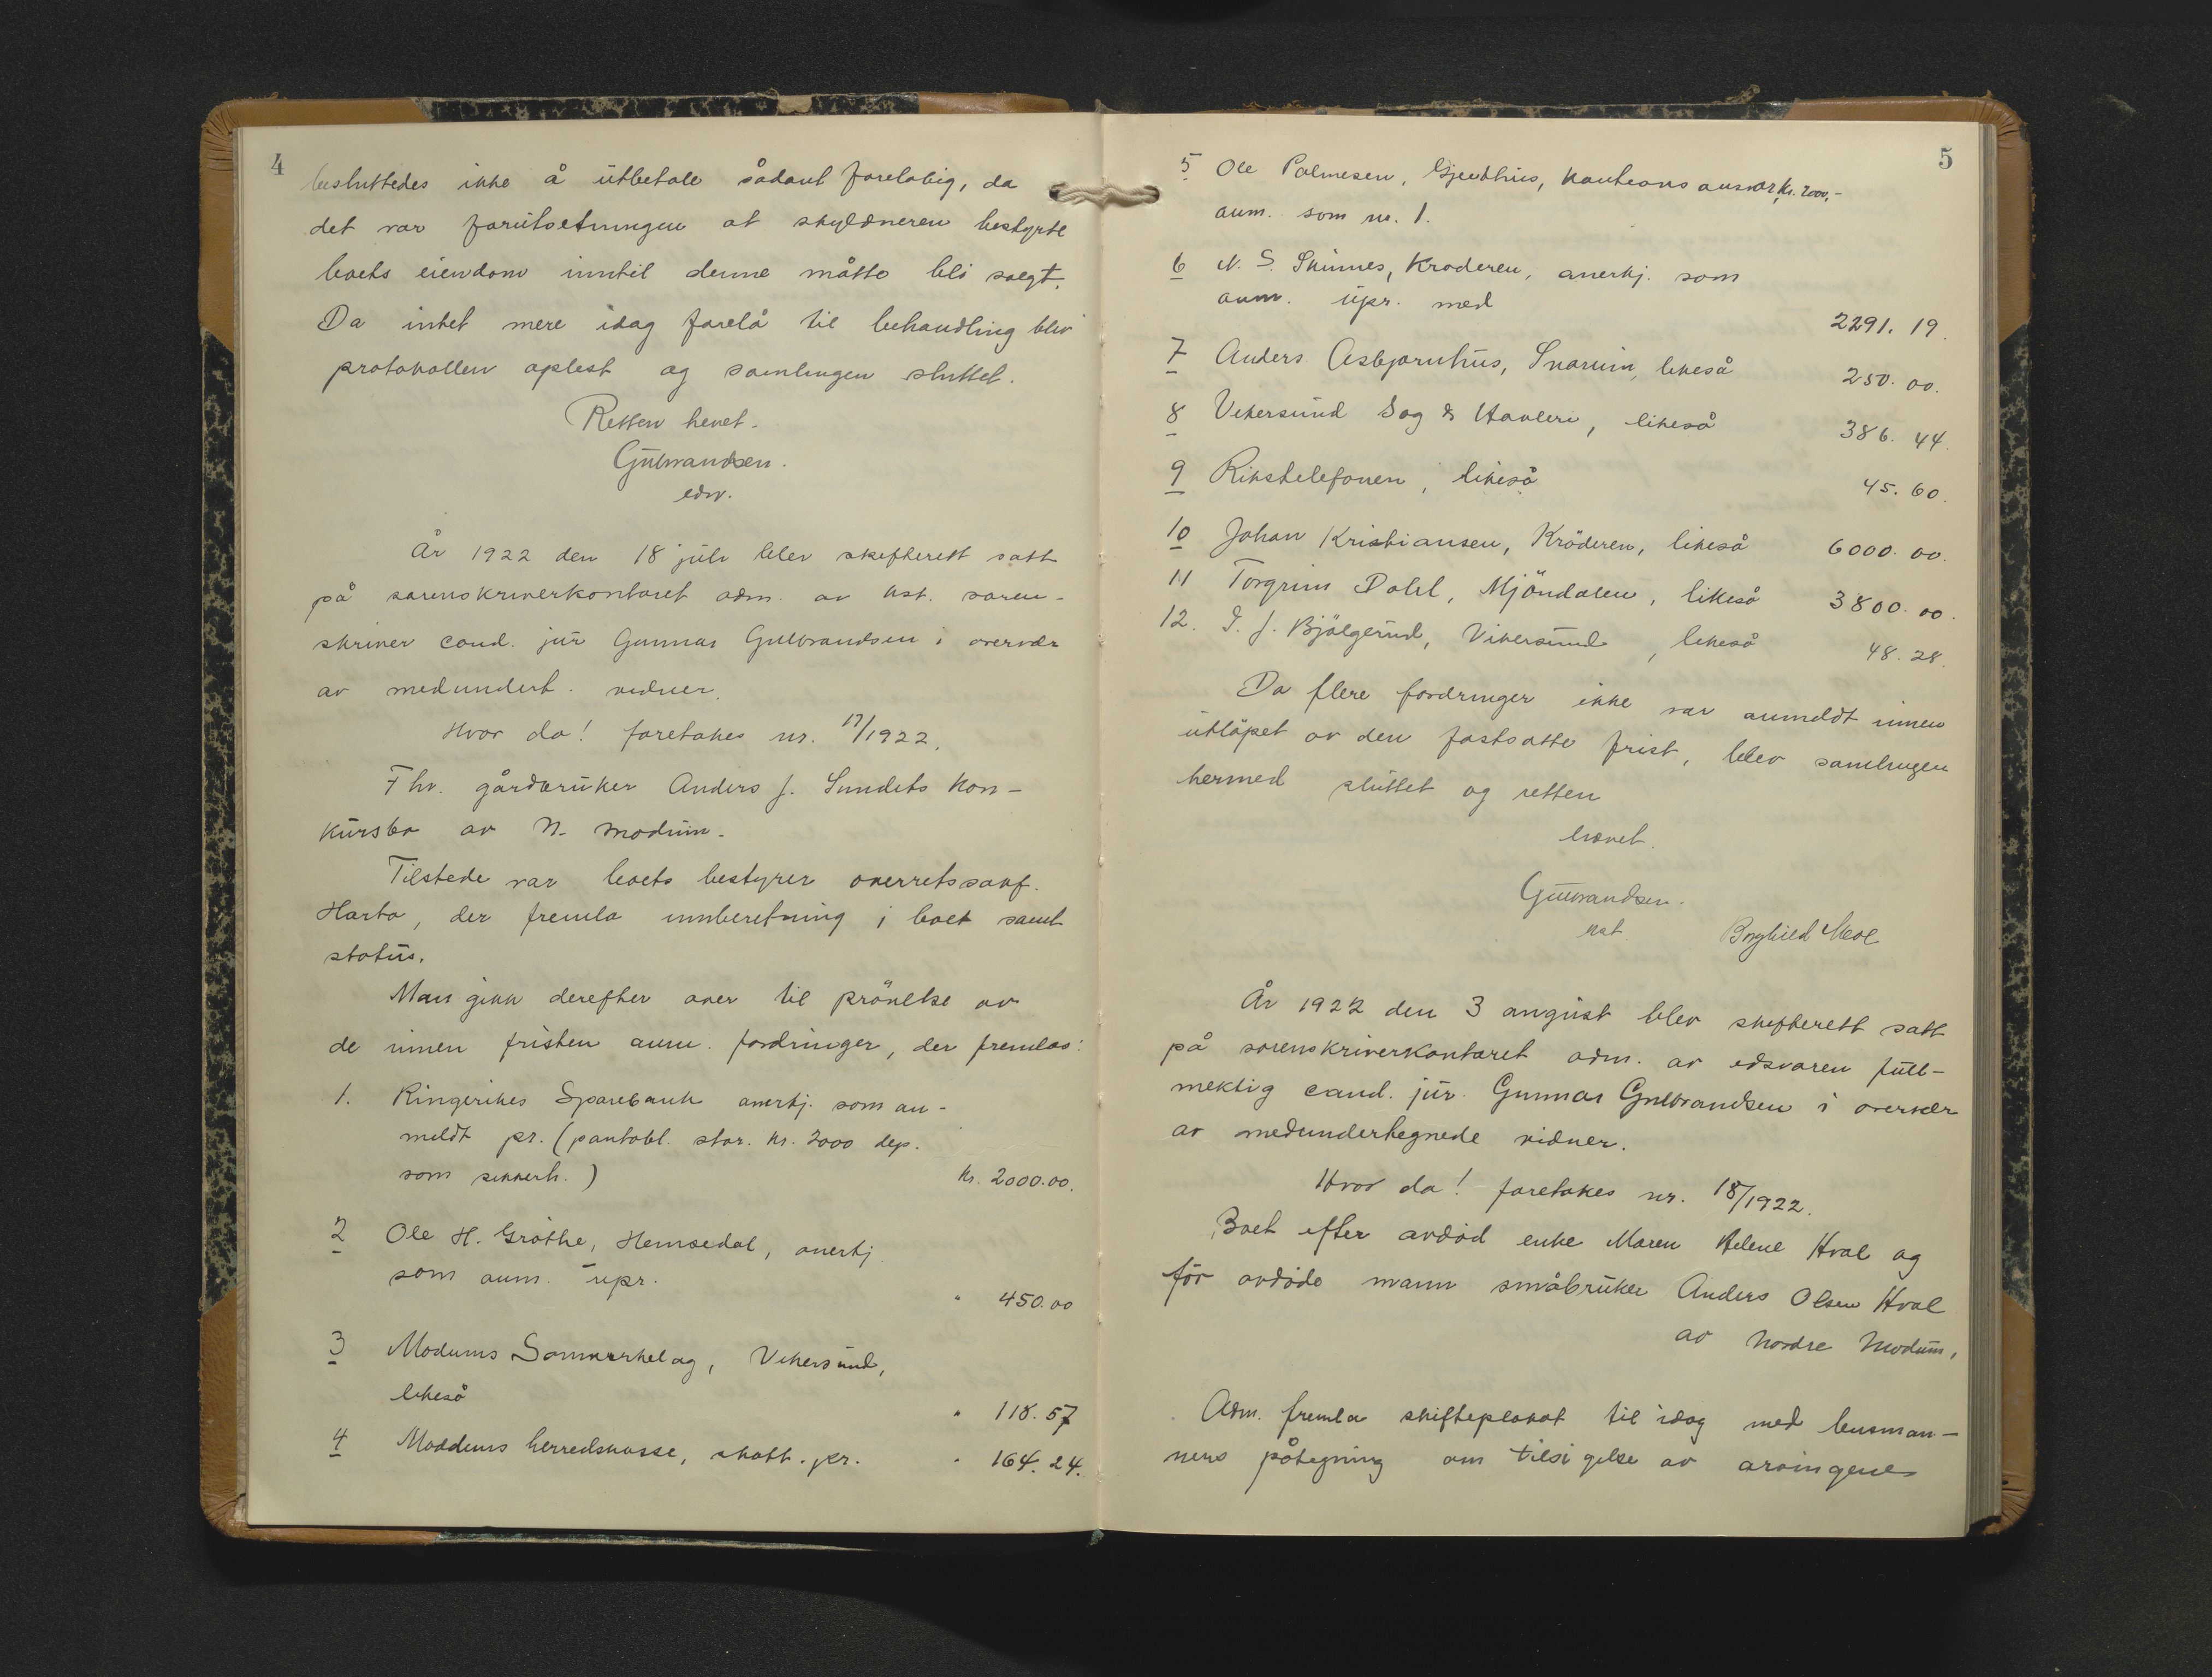 4
besluttedes ikke å utbetale sådant foreløbig, da
det var forutsetningen at skyldneren bestyrte
boets eiendom inntil denne måtte bli solgt.
Da intet mere idag forelå til behandling blev
protokollen oplest og samlingen sluttet.
Retten hevet.
Gulbrandsen.
edsv.
År 1922 den 18 juli blev skifterett satt
på sorenskriverkontoret adm. av kst. soren-
skriver cand. jur Gunnar Gulbrandsen i overvær
av medundert. vidner.
Hvor da! foretokes nr. 17/1922.
Fhv. gårdbruker Anders J. Sundets kon-
kursbo av N. Modum.
Tilstede var boets bestyrer overretssakf.
Harbo, der fremla innberetning i boet samt
status.
Man gikk derefter over til prövelse av
de innen fristen anm. fordringer, der fremlås:
1. Ringerikes Sparebank anerkj. som an-
meldt pr. (pantobl. stor. kr. 3000 dep.
som sikkerh.) kr. 2000.00.
2 Ole H. Gröthe, Hemsedal, anerkj.
som anm. upr. " 450.00
3 Modums Samvirkelag, Vikersund,
likeså " 118.57
4 Modums herredskasse, skatt. pr. " 164.24.
5
5 Ole Palmesen, Gjeithus, kautions ansvar kr. 2000,-
anm. som nr. 1.
6 N. S. Skinnes, Kröderen, anerkj. som
anm. upr. med 2291.19.
7 Anders Asbjørnhus, Snarum, likeså 250.00.
8 Vikersund Sag & Høvleri, likeså 386.44.
9 Rikstelefonen, likeså 45.60.
10 Johan Kristiansen, Kröderen, likeså 6000.00.
11 Torgrim Dahl, Mjöndalen, likeså 3800.00.
12. I. J. Bjölgerud, Vikersund, likeså 48.28.
Da flere fordringer ikke var anmeldt innen
utlöpet av den fastsatte frist, blev samlingen
hermed sluttet og retten
hævet.
Gulbrandsen.
kst. Borghild Moe
År 1922 den 3 august blev skifterett satt
på sorenskriverkontoret adm. av edsvoren full-
mektig cand. jur. Gunnar Gulbrandsen i overvær
av medundertegnede vidner.
Hvor da! foretokes nr. 18/1922.
Boet efter avdöd enke Maren Helene Hval og
för avdöde mann småbruker Anders Olsen Hval
av Nordre Modum.
Adm. fremla skifteplakat til idag med lensman-
nens påtegning om tilsigelse av arvingene